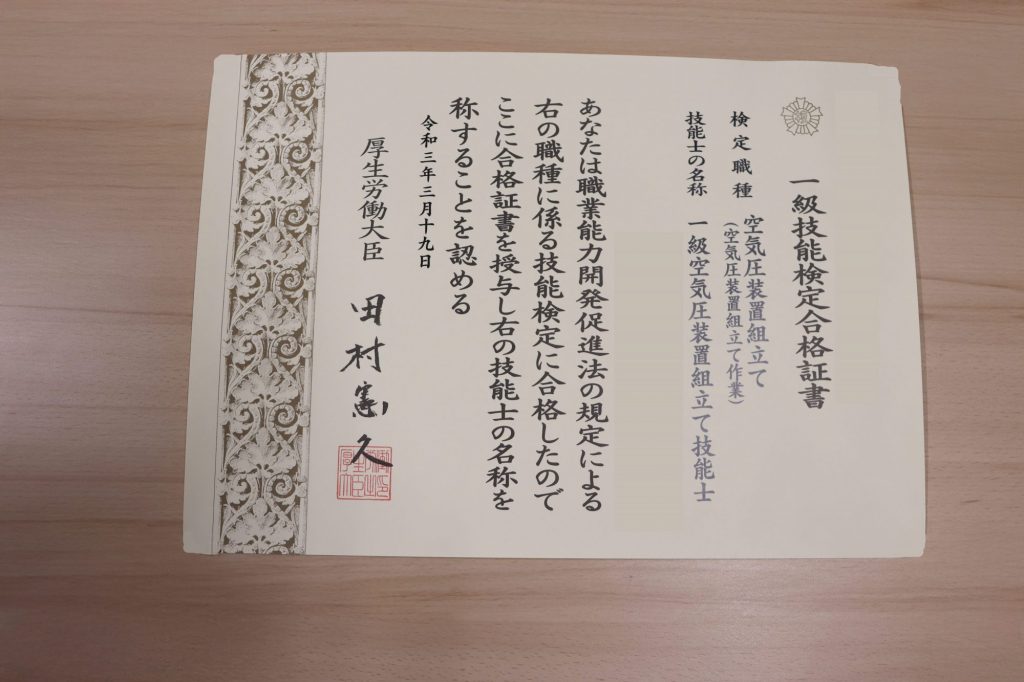 一級技能検定合格証書
検定職種 空気圧装置組立て
(空気圧装置組立て作業)
技能士の名称 一級空気圧装置組立て技能士
あなたは職業能力開発促進法の規定による
右の職種に係る技能検定に合格したので
ここに合格証書を授与し右の技能士の名称を
称することを認める
令和三年三月十九日
厚生労働大臣 田村憲久